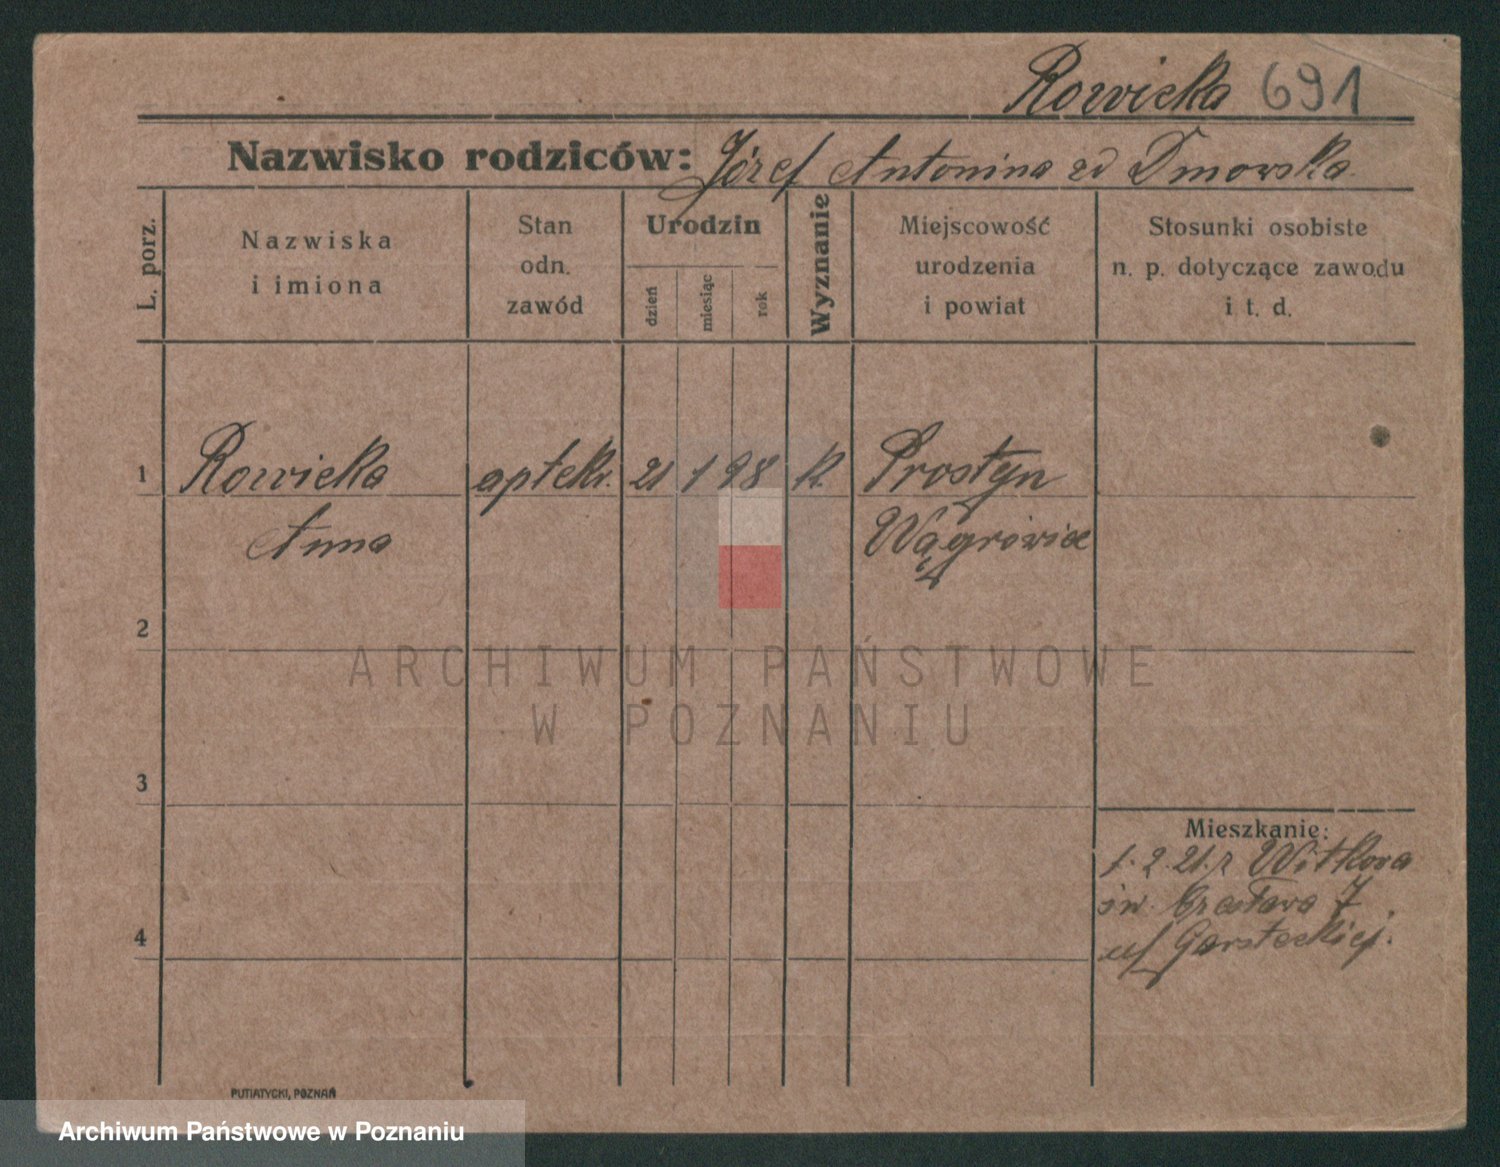 Rowicka 691
Nazwisko rodziców: Józef Antonina zd Dmowska
L. porz.
Nazwiska
i imiona
Stan
odn.
zawód
Urodzin
dzień
miesiąc
rok
Wyznanie
Miejscowość
urodzenia
i powiat
Stosunki osobiste
n. p. dotyczące zawodu
i t. d.
1 Rowicka aptekr. 21 1 98 k. Prostyn
Anna Wągrówiec
2
3
4
ARCHIWUM PAŃSTWOWE
W POZNANIU
Mieszkanie:
1. 2. 21. z Witkowa
św. 7
u Garsteckiej.
PUTIATYCKI, POZNAŃ
Archiwum Państwowe w Poznaniu